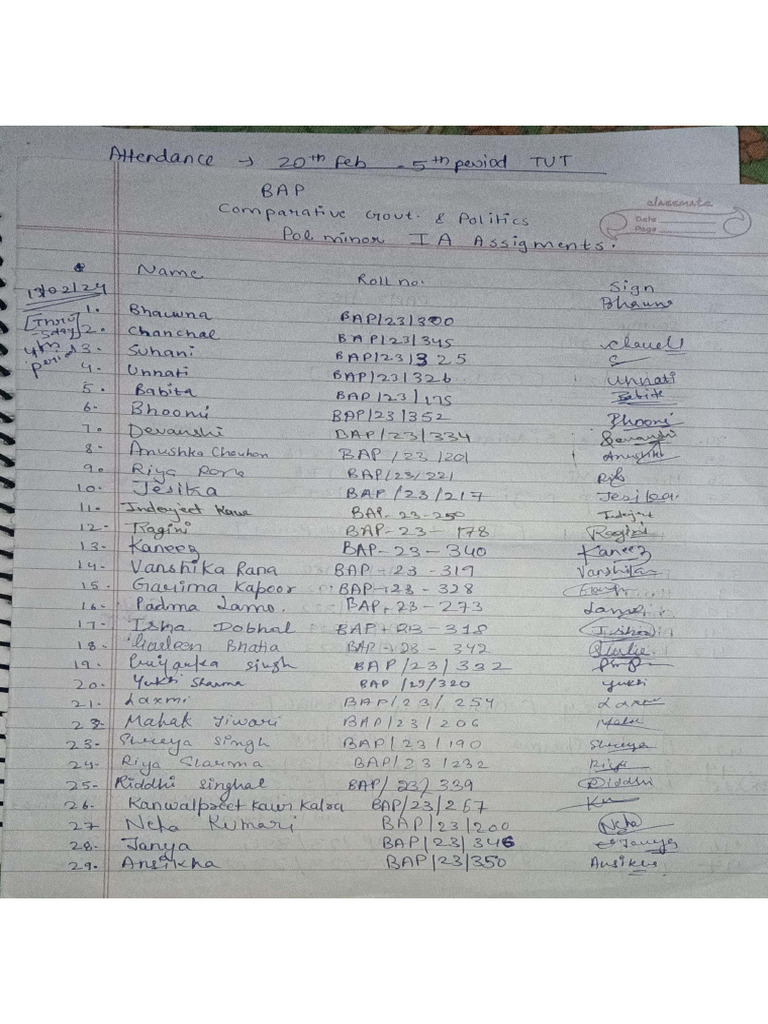 Attendance → 20th Feb - 5th period TUT
BAP
Comparative Govt. & Politics
Pol minor IA Assigments.
classmate
Date
Page
Name Roll no. Sign
[Thru-sday] 4th period
1. Bhawna BAP/23/300 Bhawna
2. Chanchal BAP/23/345
3. Suhani BAP/23/325 S
4. Unnati BAP/23/326 Unnati
5. Babita BAP/23/175 Babita
6. Bhoomi BAP/23/352 Bhoomi
7. Devanshi BAP/23/334 Devanshi
8. Anushka Chauhan BAP/23/201 Anushka
9. Riya BAP/23/221
10. Jesika BAP/23/217 Jesika
11. Inderjeet Kaur BAP-23-250 Inderjeet
12. Ragini BAP-23-178 Ragini
13. Kaneez BAP-23-340 Kaneez
14. Vanshika Rana BAP-23-319 Vanshika
15. Garima Kapoor BAP-23-328
16. Padma Lamo. BAP-23-273 Lamo
17. Isha Dobhal BAP-23-318 Isha
18. Bhatia BAP-23-342
19. Priyanka Singh BAP/23/332
20. Yukti Sharma BAP/23/320 Yukti
21. Laxmi BAP/23/254
22. Mahak Tiwari BAP/23/206
23. Shreya Singh BAP/23/190 Shreya
24. Riya Sharma BAP/23/232 Riya
25. Riddhi Singhal BAP/23/339 Riddhi
26. Kanwalpreet Kaur Kalra BAP/23/267
27 Neha Kumari BAP/23/200 Neha
28. Tanya BAP/23/346 Tanya
29. Ansikha BAP/23/350